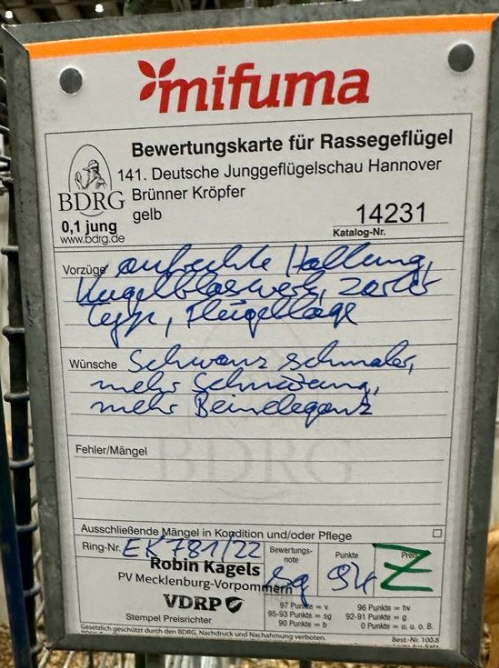 mifuma
Bewertungskarte für Rassegeflügel
141. Deutsche Junggeflügelschau Hannover
BDRG Brünner Kröpfer
gelb
0,1 jung 14231
www.bdrg.de Katalog-Nr.
Vorzüge aufrechte Haltung,
Kugelblaswerk, zarter
Typ, Flügellage
Wünsche Schwanz schmaler,
mehr Schnürung,
mehr Beineleganz
Fehler/Mängel
BDRG
Ausschließende Mängel in Kondition und/oder Pflege
Ring-Nr. EK781/22 Bewertungs-note Punkte Preis
Robin Kagels sg 94 Z
PV Mecklenburg-Vorpommern
VDRP 97 Punkte = v 96 Punkte = hv
95-93 Punkte = sg 92-91 Punkte = g
Stempel Preisrichter 90 Punkte = b 0 Punkte = u. o. B.
Gesetzlich geschützt durch den BDRG, Nachdruck und Nachahmung verboten. Best.-Nr. 100.8